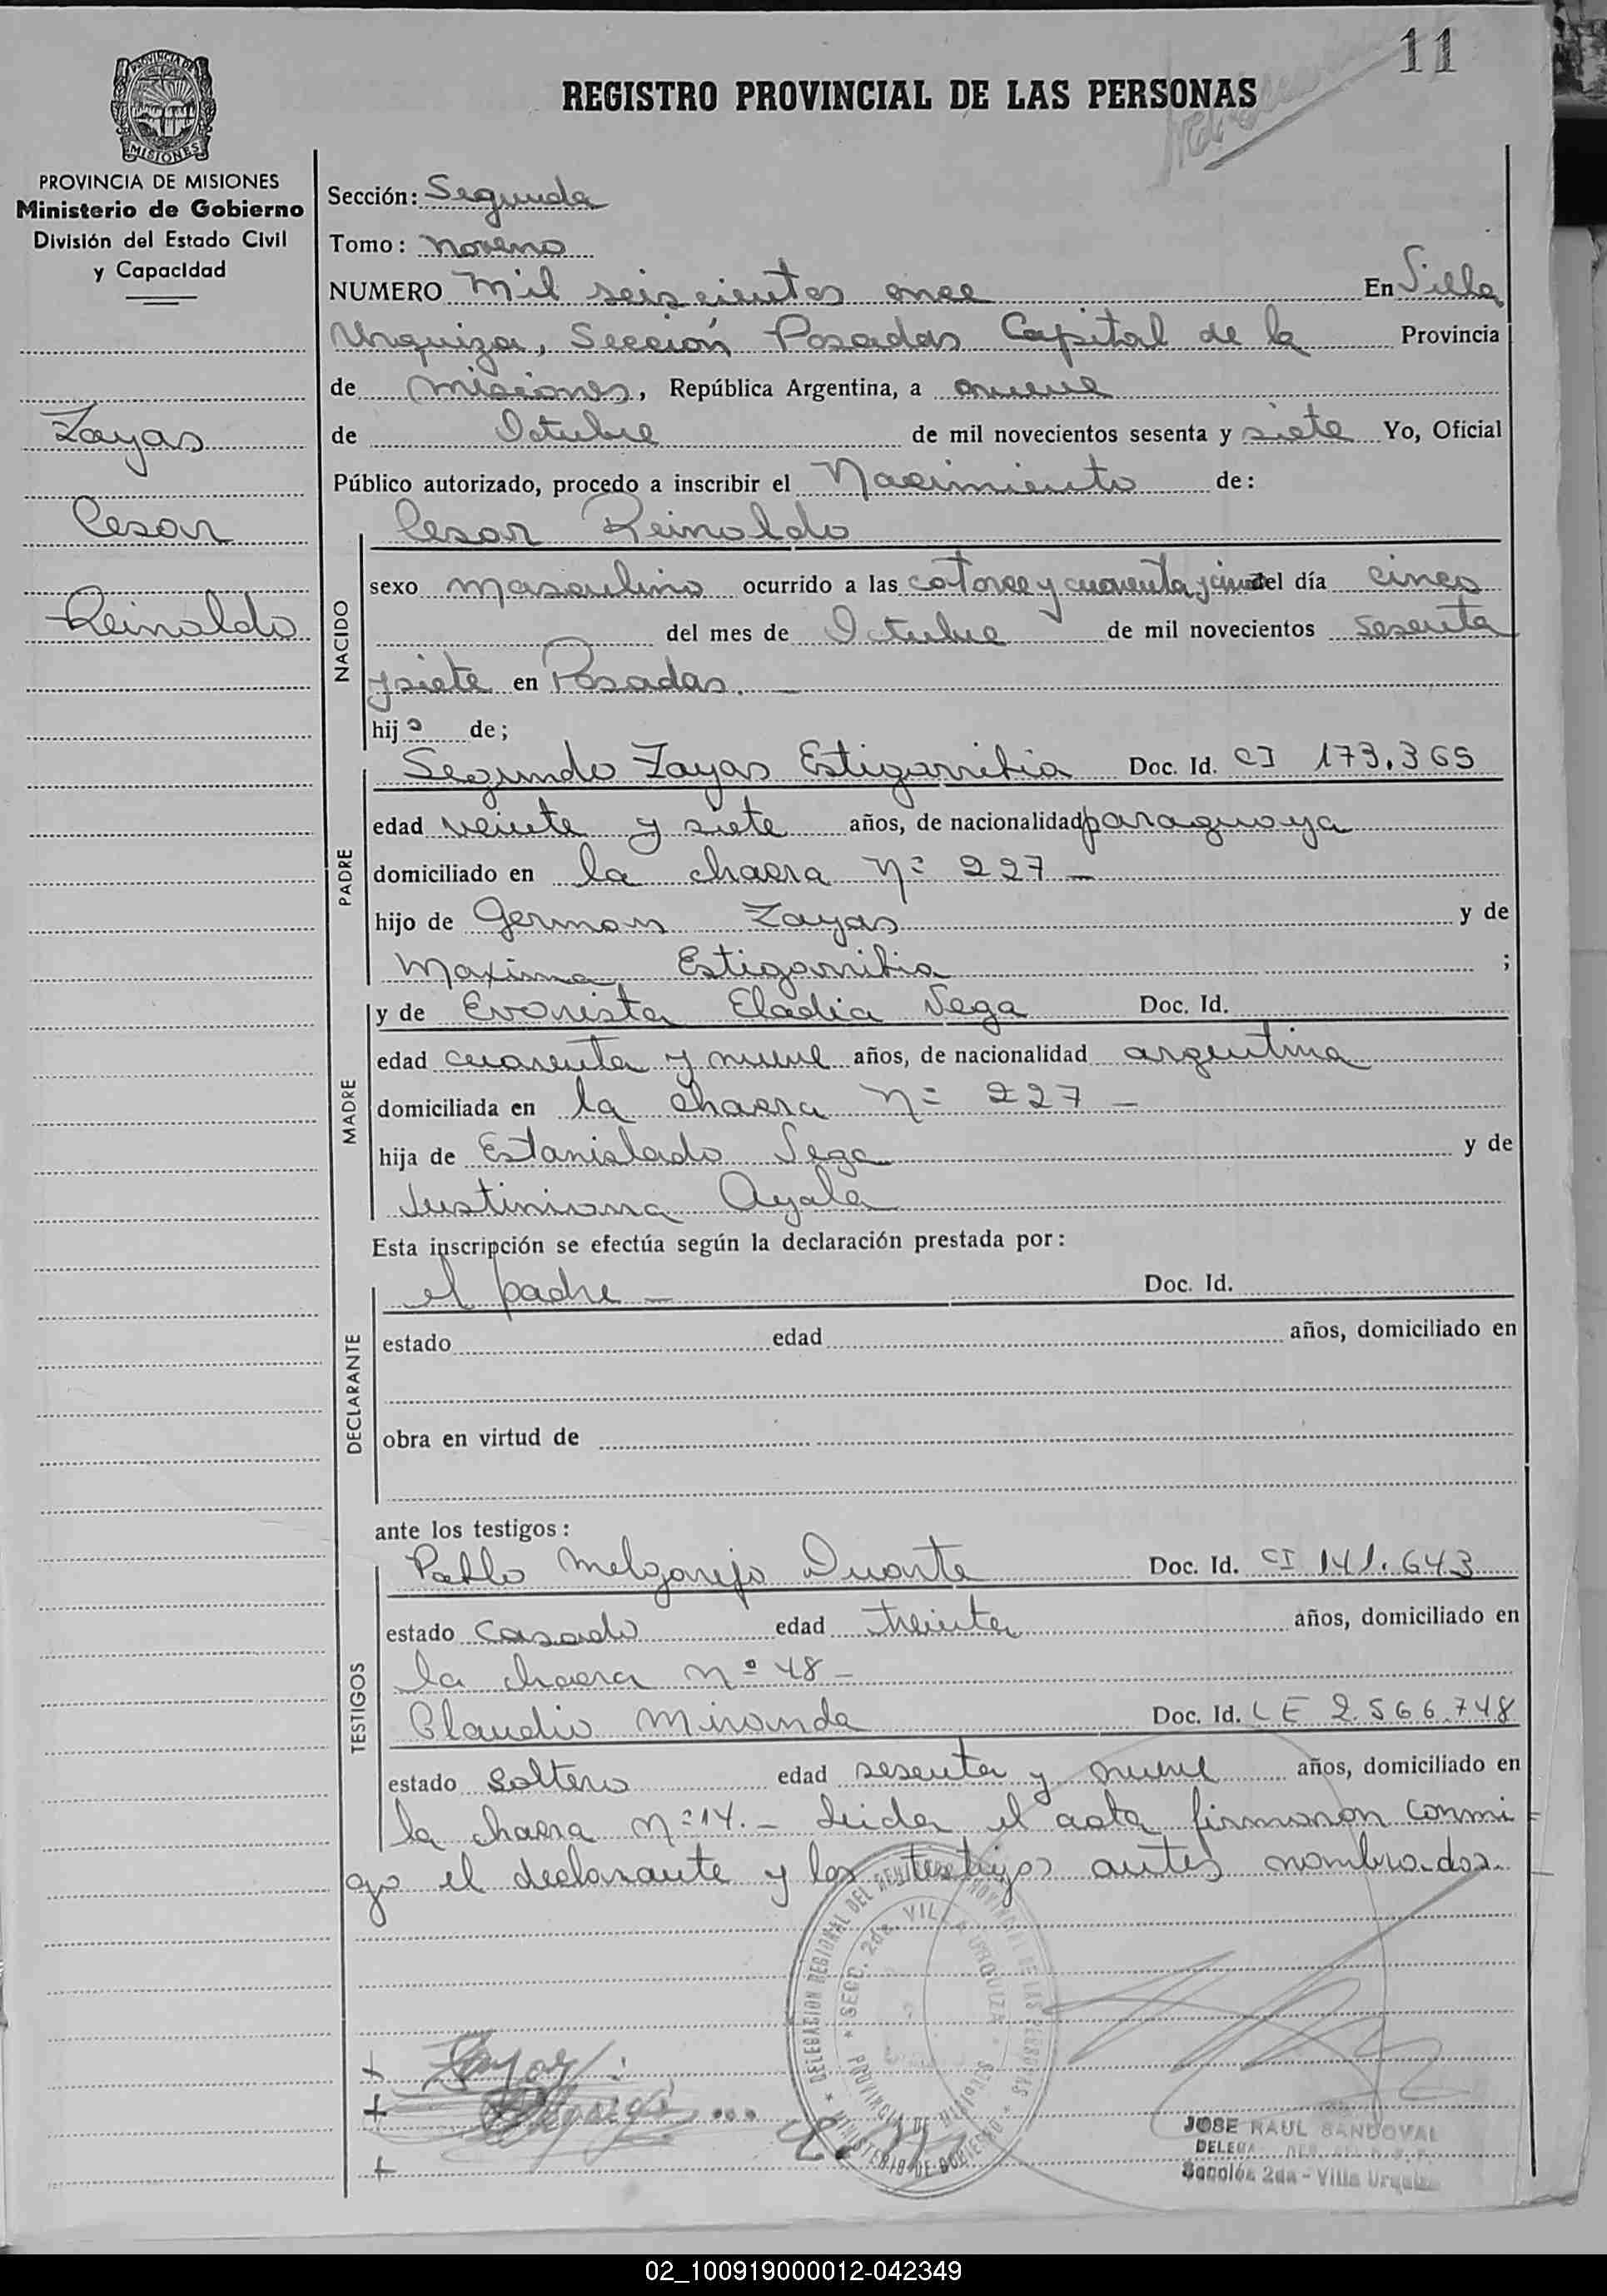 11
REGISTRO PROVINCIAL DE LAS PERSONAS
PROVINCIA DE
MISIONES
PROVINCIA DE MISIONES
Ministerio de Gobierno
División del Estado Civil
y Capacidad
Zayas
Cesar
Reinaldo
Sección: Segunda
Tomo: noveno
NUMERO Mil seiscientos once En Villa
Urquiza, Sección Posadas Capital de la Provincia
de Misiones, República Argentina, a nueve
de Octubre de mil novecientos sesenta y siete Yo, Oficial
Público autorizado, procedo a inscribir el Nacimiento de:
NACIDO
Cesar Reinaldo
sexo masculino ocurrido a las catorce y cuarenta y cinco del día cinco
del mes de Octubre de mil novecientos sesenta
y siete en Posadas. —
hijo de;
PADRE
Segundo Zayas Estigarribia Doc. Id. CI 173.365
edad veinte y siete años, de nacionalidad paraguaya
domiciliado en la chacra Nº 227 —
hijo de German Zayas y de
Maxima Estigarribia ;
MADRE
y de Evarista Eladia Vega Doc. Id.
edad cuarenta y nueve años, de nacionalidad argentina
domiciliada en la chacra Nº 227 —
hija de Estanislado Vega y de
Justiniana Ayala
Esta inscripción se efectúa según la declaración prestada por:
DECLARANTE
el padre — Doc. Id.
estado edad años, domiciliado en
obra en virtud de
ante los testigos:
TESTIGOS
Pablo Melgarejo Duarte Doc. Id. CI 141.643
estado casado edad treinta años, domiciliado en
la chacra nº 48 —
Claudio Miranda Doc. Id. LE 2.566.748
estado soltero edad sesenta y nueve años, domiciliado en
la chacra nº 14. — Leida el acta firmaron conmi=
go el declarante y los testigos antes nombrados.
DELEGACION REGIONAL DEL REGISTRO PROVINCIAL DE LAS PERSONAS
SECC. 2da. VILLA URQUIZA
PROVINCIA DE MISIONES
MINISTERIO DE GOBIERNO
Zayas
JOSE RAUL SANDOVAL
Sección 2da - Villa Urquiza
02_100919000012-042349